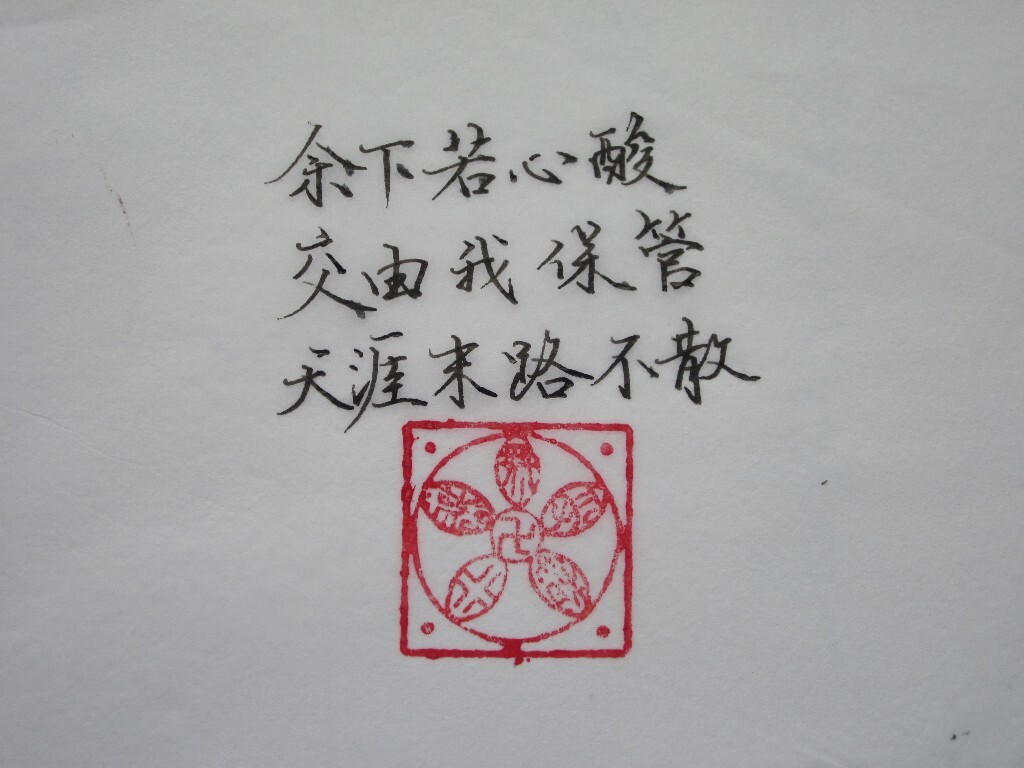 余下若心酸
交由我保管
天涯末路不散